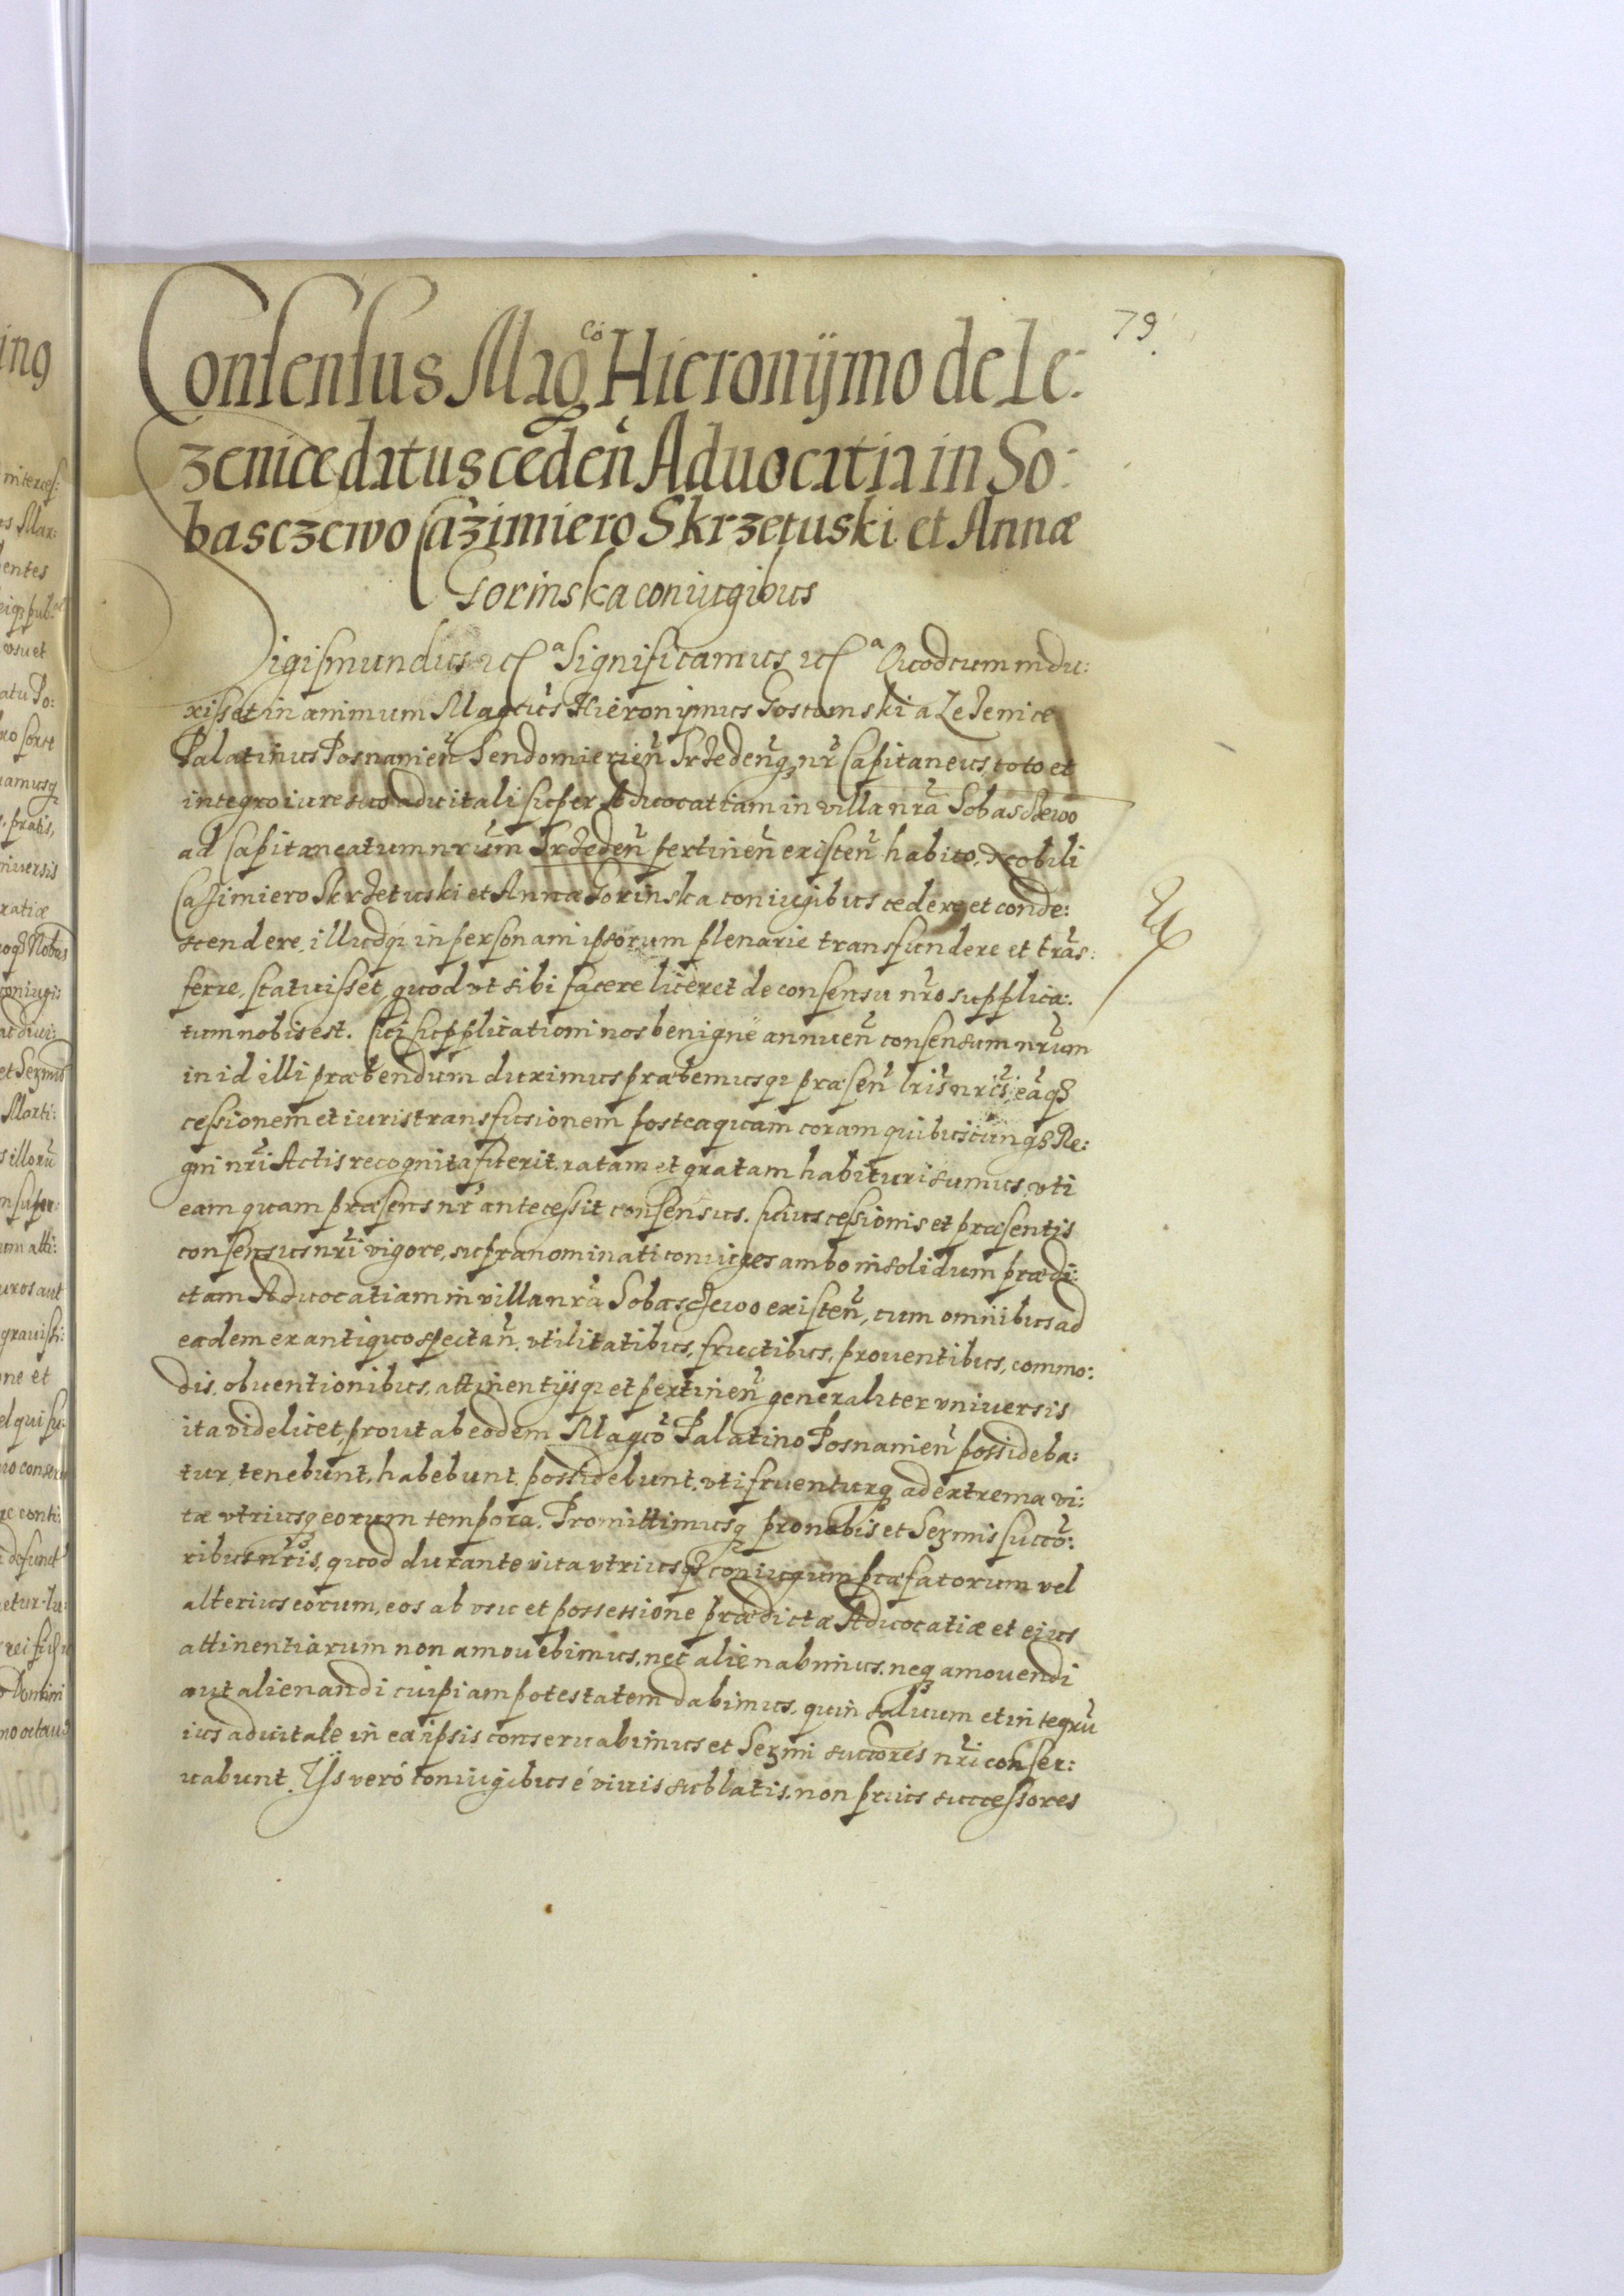 79.
Consensus Mag^co Hieronÿmo de Le:
zenice datus ceden̄ Aduocatia in So:
basczewo Cazimiero Skrzetuski et Annæ
Gorinska coniugibus
Sigismundus etc^a Significamus etc^a Quod cum indu:
xisset in animum Magcūs Hieronijmus Gostomski a Lezenice
Palatinus Posnanien̄ Sendomierien̄ Srzeden̄q nr̄ Capitaneus, toto et
integro iure suo aduitali super Aduocatiam in villa nr̄a Sobasczewo
ad Capitaneatum nr̄um Srzeden̄ pertinen̄ existen̄ habito, Nobili
Cazimiero Skrzetuski et Annæ Gorinska coniugibus cedere et conde:
scendere, illudq in personam ipsorum plenarie transfundere et trās:
ferre, statuisset, quod vt sibi facere liceret de consensu nr̄o supplica:
tum nobis est. Cui supplicationi nos benigne annuen̄ consensum nr̄um
in id illi præbendum duximus præbemusq præsen̄ lr̄is nr̄is, eāq
cessionem et iuris transfusionem posteaquam coram quibuscunq Re:
gni nr̄i Actis recognita fuerit, ratam et gratam habituri sumus, vti
eam quam præsens nr̄ antecessit consensus. Cuius cessionis et præsentis
consensus nr̄i vigore, supranominati coniuges ambo in solidum prædi:
ctam Aduocatiam in villa nr̄a Sobasczewo existen̄, cum omnibus ad
eadem ex antiquo spectan̄. vtilitatibus, fructibus, prouentibus, commo:
dis, obuentionibus, attinentijsq et pertinen̄ generaliter vniuersis
ita videlicet, prout ab eodem Magcō Palatino Posnanien̄ possideba:
tur, tenebunt, habebunt, possidebunt, vti fruenturq ad extrema vi:
tæ vtriusq eorum tempora. Promittimusq pro nobis et Sermis succō:
ribus nr̄is, quod durante vita vtriusq coniugum præfatorum vel
alterius eorum, eos ab vsu et possessione prædictæ Aduocatiæ et eius
attinentiarum non amouebimus, nec alienabimus, neq amouendi
aut alienandi cuipiam potestatem dabimus, quin saluum et integrū
ius aduitale in ea ipsis conseruabimus et Sermi succores nr̄i conser:
uabunt. Ijs verò coniugibus è viuis sublatis, non prius successores